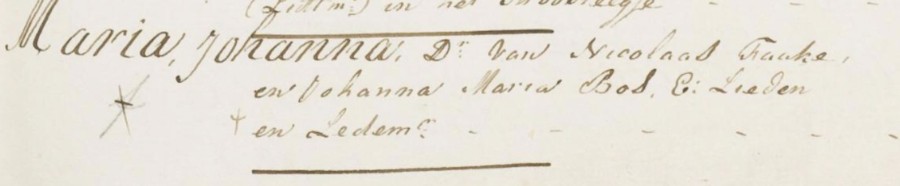 (Littm:) in het
Maria, Johanna, Dr van Nicolaas Faauke,
en Johanna Maria Bos, E: Lieden
en Ledemn - - - - -